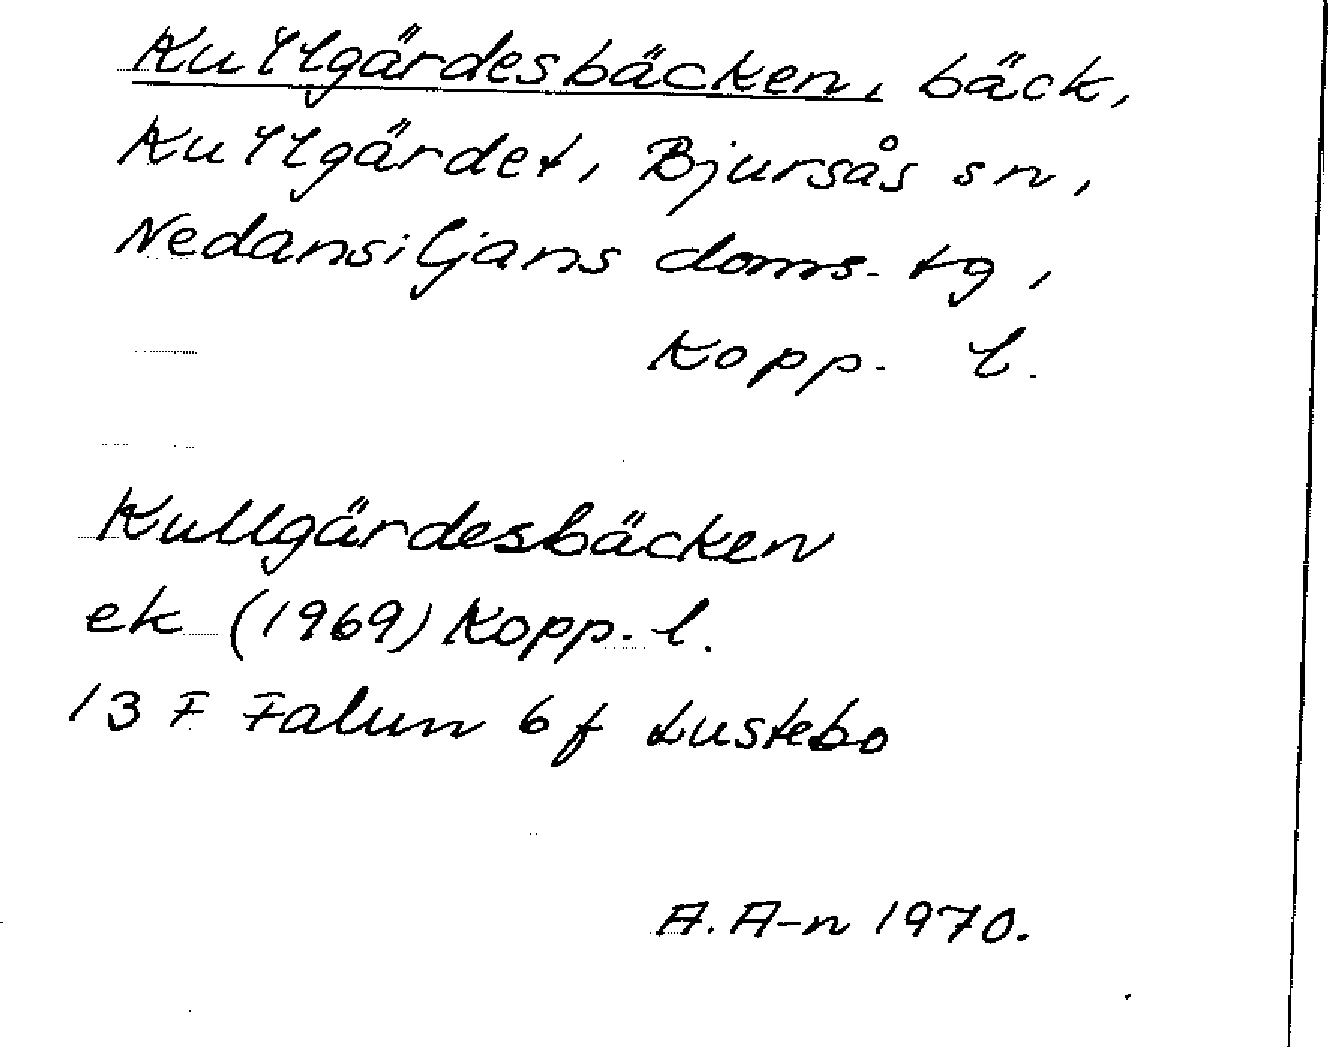 Kullgärdesbäcken, bäck,
Kullgärdet, Bjursås sn,
Nedansiljans doms. tg,
Kopp. l.
Kullgärdesbäcken
ek (1969) Kopp. l.
13 F Falun 6 f Lustebo
A. A-n 1970.